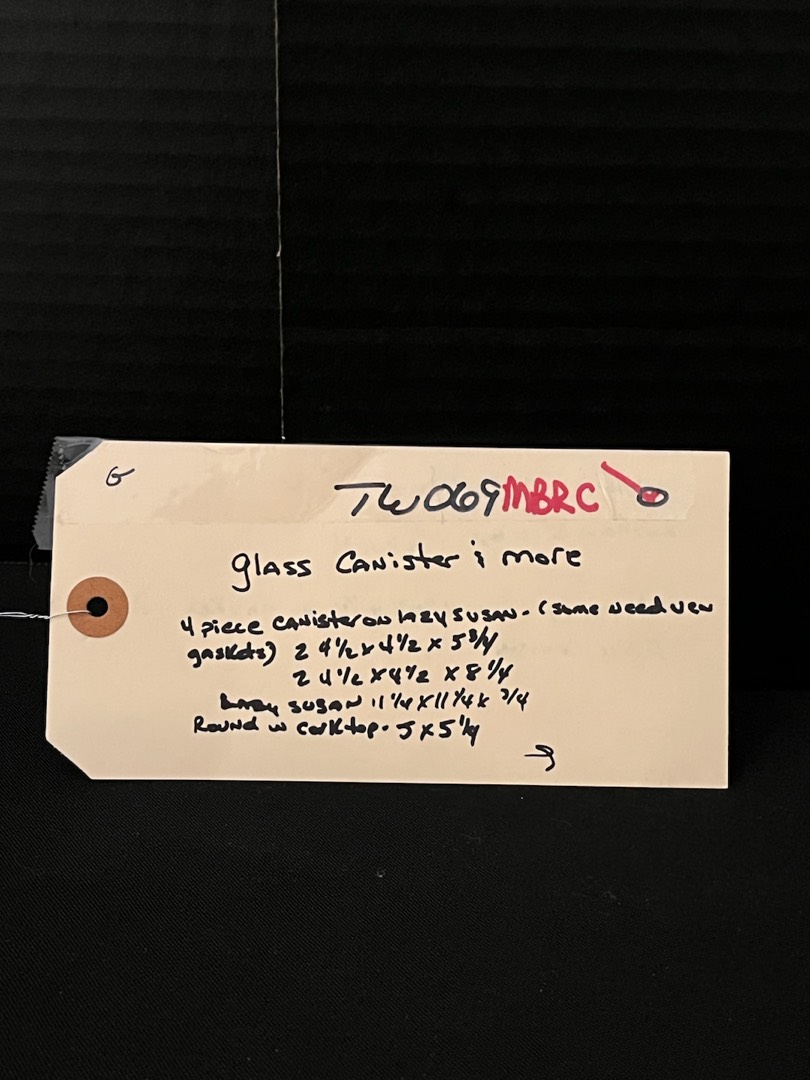 G
TW069MBRC
glass Canister & more
4 piece canister on lazy susan - (some need new
gaskets) 2 4 1/2 x 4 1/2 x 5 3/4
2 4 1/2 x 4 1/2 x 8 1/4
Lazy susan 11 1/4 x 11 1/4 x 3/4
Round w cork top - 5 x 5 1/4